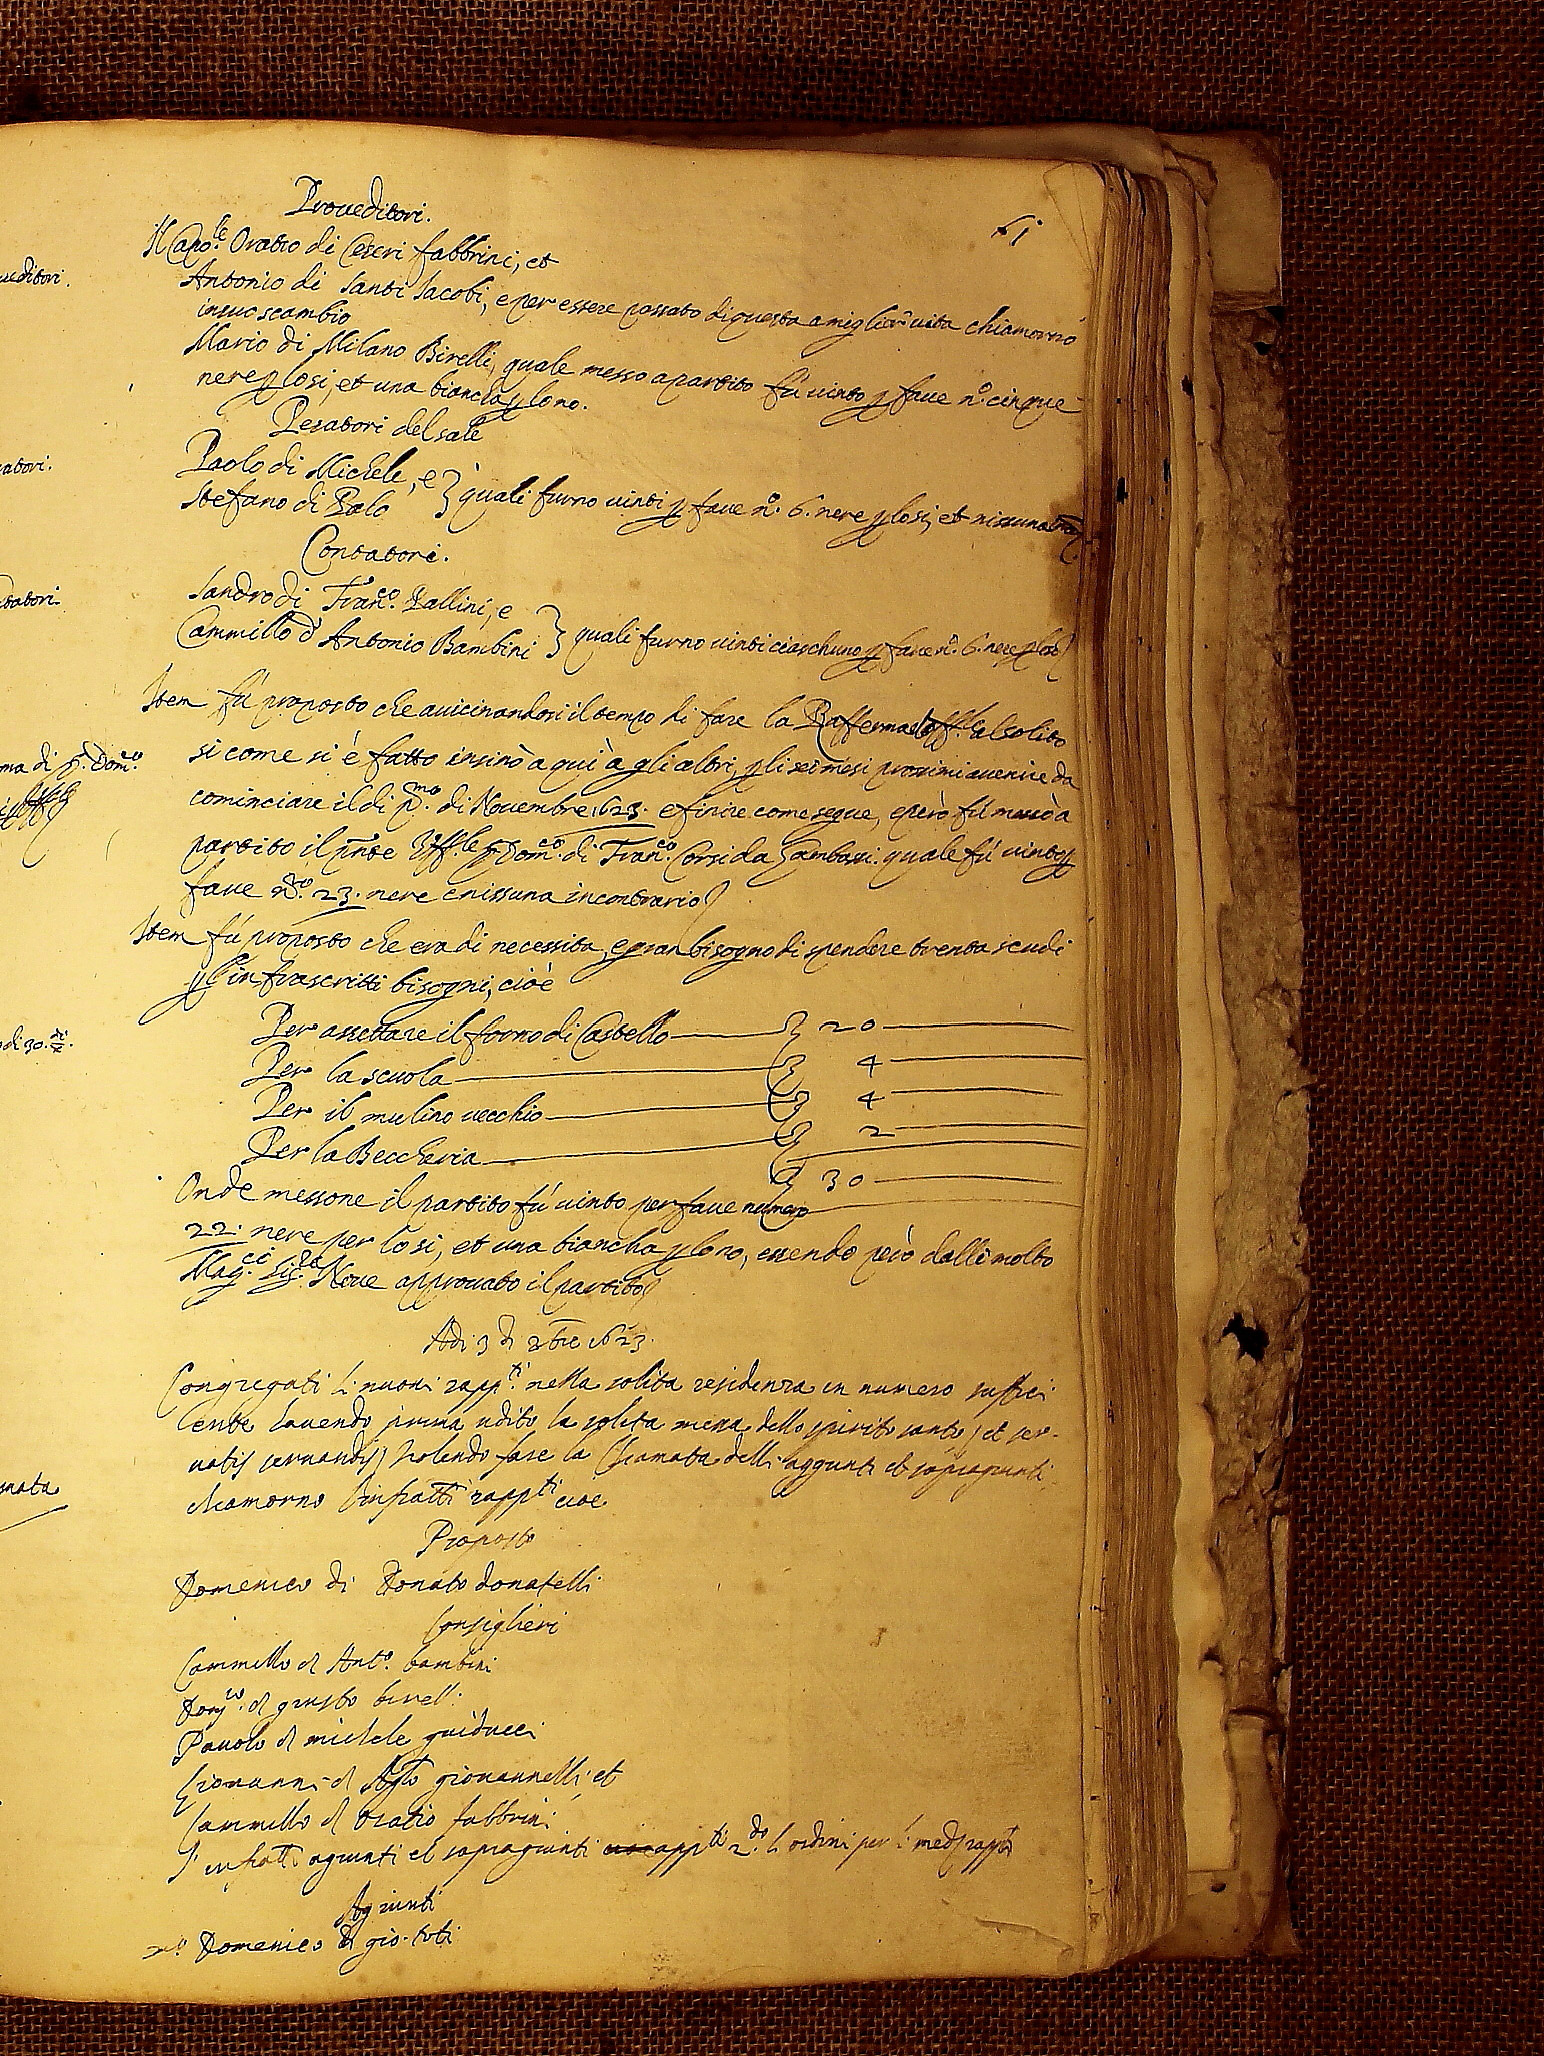 61
Proueditori.
Il Capo.le Oratio di Ceseri fabbrini, et
Antonio di Santi Iacobi, e per essere passato di questa a miglior uita chiamorno
in suo scambio
Mario di Milano Birelli, quale messo a partito fù uinto p faue n.o cinque
nere p lo si, et una biancha p lo no.
Pesatori del sale
Paolo di Michele, e
Stefano di Palo } quali furno uinti p faue n.o 6. nere p lo si, et nissuna
Contatori.
Sandro di Fran.co Pallini, e
Cammillo d'Antonio Bambini } quali furno uinti ciaschuno p faue n.o 6. nere p lo si
Item fù proposto che auicinandosi il tempo di fare la Rafferma al solito
si come si è fatto insino a qui à gli altri, p li sei mesi prossimi auenire da
cominciare il di p.mo di Nouembre 1623. e finire come segue, e però fù messo à
partito il pnte Dom.co di Fran.co Corsi da Gambassi. quale fù uinto p
faue n.o 23. nere e nissuna in contrario
Item fù proposto che era di necessita, e gran bisogno di spendere trenta scudi
p l'infrascritti bisogni, cioè
Per assettare il forno di Castello 20
Per la scuola 4
Per il mulino uecchio 4
Per la Beccheria 2
30
Onde messone il partito fù uinto per faue numero
22. nere per lo si, et una biancha p lo no, essendo però dalli molto
Mag.ci Sig.ri Noue approuato il partito
Adi 3 di 8bre 1623.
Congregati li nuoui rapp.ti nella solita residenza in numero suffici
ente hauendo prima udito la solita messa dello spirito santo, et ser
uatis seruandis, Volendo fare la Chiamata delli aggunti et sopragiunti
chiamorno l'infratti rapp.ti cioe
Proposto
Domenico di Donato donatelli
Consiglieri
Cammillo d Ant.o bambini
di giusto birelli
Pauolo d michele guiducci
Giouanni d giouannelli et
Cammillo d Oratio fabbrini
l'infratti agiunti et sopragiunti app.ti 2.do li ordini per li med rapp.ti
Agiunti
Domenico di gio. tuti
ueditori.
atori.
tatori.
ma di Dom.co
di 30.
mata